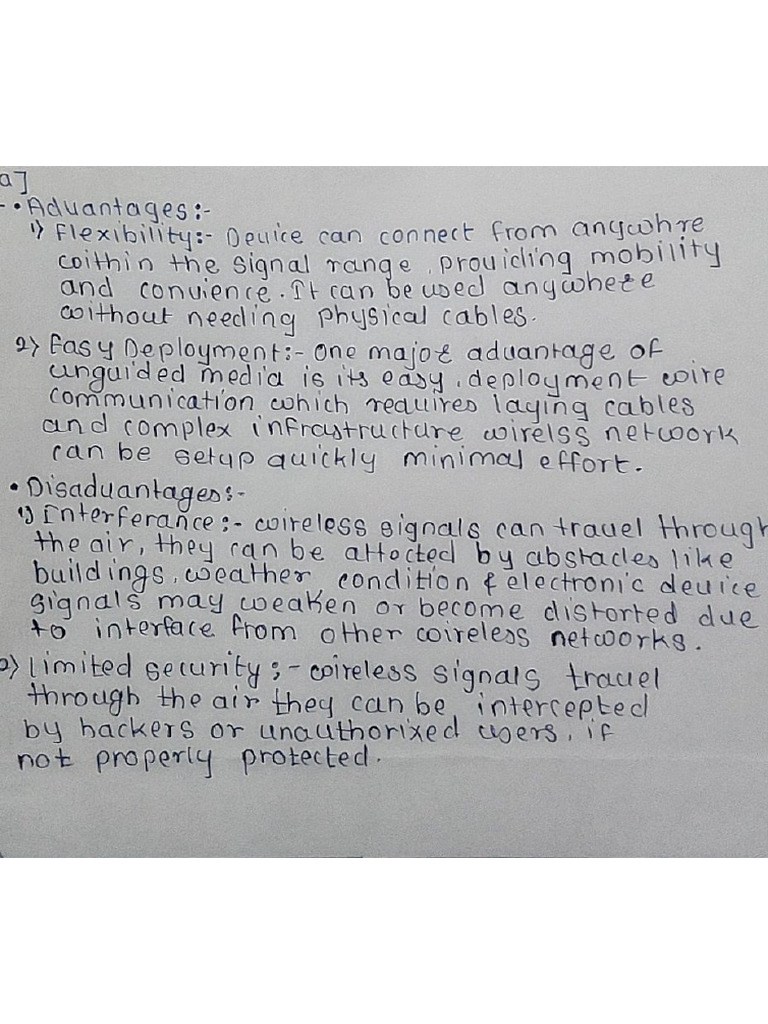 a]
- • Advantages:-
1) Flexibility:- Device can connect from anywhre
within the signal range, providing mobility
and convience. It can be used anywhere
without needing physical cables.
2) Easy Deployment:- One major advantage of
unguided media is its easy, deployment wire
communication which requires laying cables
and complex infrastructure wirelss network
can be setup quickly minimal effort.
• Disadvantages:-
1) Interferance:- wireless signals can travel through
the air, they can be affected by abstacles like
buildings, weather condition & electronic device
signals may weaken or become distorted due
to interface from other wireless networks.
2) Limited security:- wireless signals travel
through the air they can be intercepted
by hackers or unauthorized users, if
not properly protected.